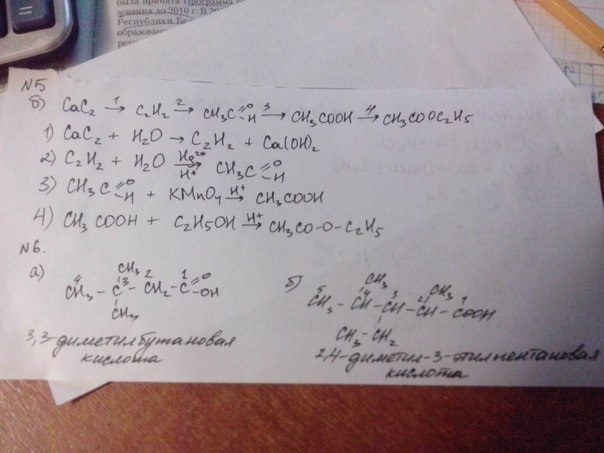 была принята Программа
зования до 2010 г. В 20
Республики Бел
образован
рех
N5
б) CaC₂ →¹ C₂H₂ →² CH₃C=O H →³ CH₃COOH →⁴ CH₃COOC₂H₅
1) CaC₂ + H₂O → C₂H₂ + Ca(OH)₂
2) C₂H₂ + H₂O →Hg²⁺ H⁺ CH₃C=O H
3) CH₃C=O H + KMnO₄ →H⁺ CH₃COOH
4) CH₃COOH + C₂H₅OH →H⁺ CH₃CO-O-C₂H₅
N6.
а) CH₃ 2 1 O
4 CH₃ - 3 C - CH₂ - C = OH
CH₃
3,3-диметилбутановая
кислота
б) CH₃ CH₃
5 CH₃ - 4 CH - 3 CH - 2 CH - 1 COOH
CH₃ - CH₂
2,4-диметил-3-этилпентановая
кислота